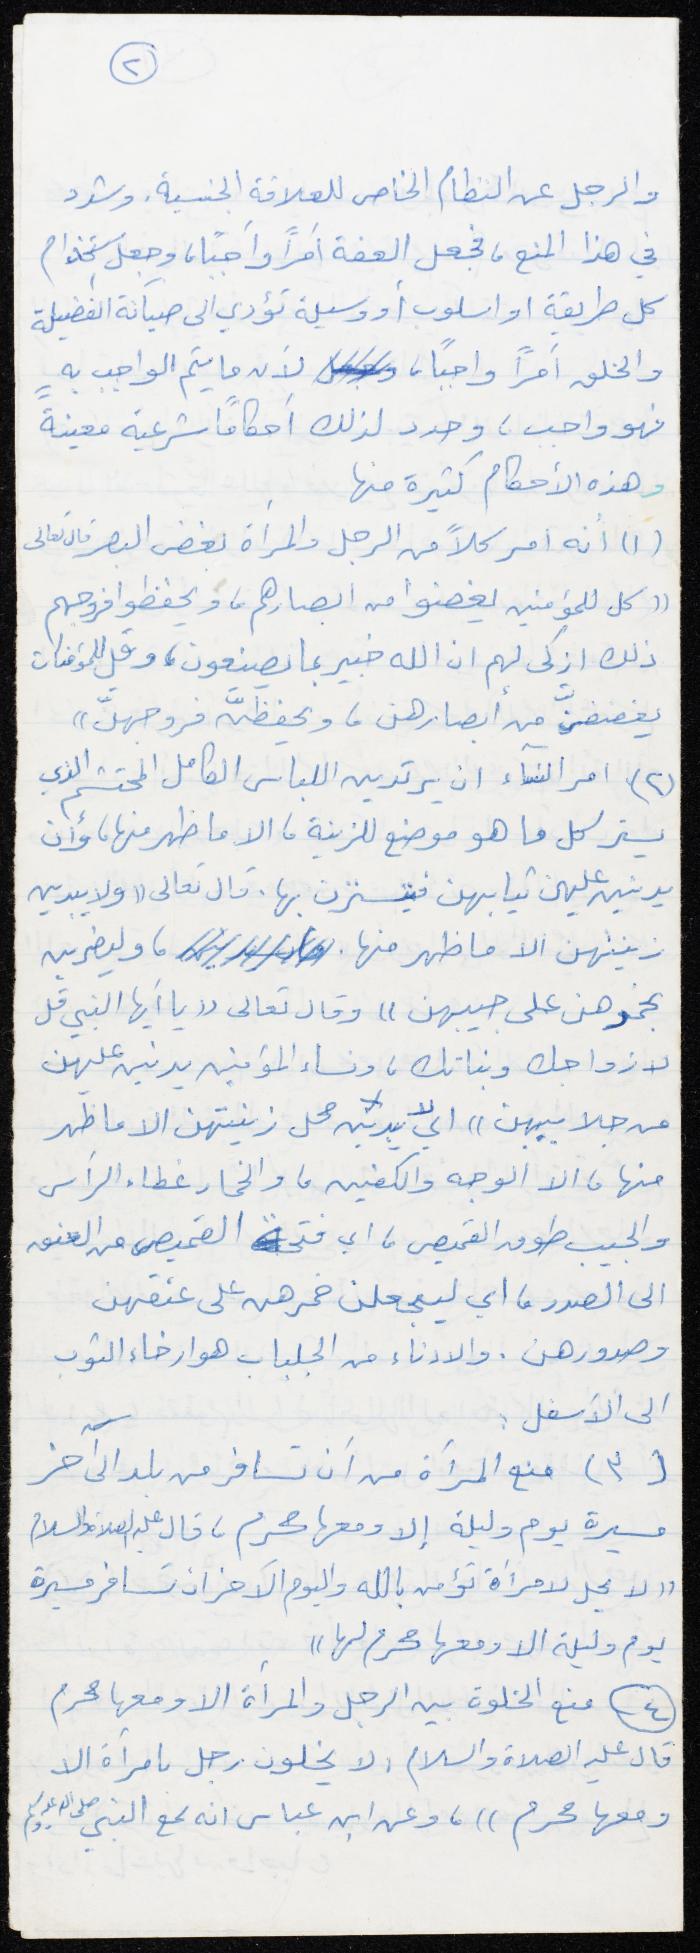 ٢
والرجل عن النظام الخاص للعلاقة الجنسية، وشدد
في هذا المنع، فجعل العفة أمراً واجباً، وجعل استخدام
كل طريقة او اسلوب أو وسيلة تؤدي الى صيانة الفضيلة
والخلق أمراً واجباً، لأن ما يتم الواجب به
فهو واجب، وحدد لذلك أحكاماً شرعية معينةً
وهذه الأحكام كثيرة منها
(١) أنه امر كلاً من الرجل والمرأة بغض البصر قال تعالى
«كل للمؤمنين يغضوا من ابصارهم، ويحفظوا فروجهم
ذلك ازكى لهم ان الله خبير بما يصنعون، وقل للمؤمنات
يغضضنَّ من أبصارهن، ويحفظنَّ فروجهنَّ»
(٢) امر النساء ان يرتدين اللباس الكامل المحتشم الذي
يستر كل ما هو موضع للزينة، الا ما ظهر منها، وأن
يدنين عليهن ثيابهن فيتسترن بها. قال تعالى «ولا يبدين
زينتهن الا ما ظهر منها. ، وليضربن
بخمرهن على جيوبهن» وقال تعالى «يا أيها النبي قل
لازواجك وبناتك، ونساء المؤمنين يدنين عليهن
من جلابيبهن» اي لا يبدين محل زينتهن الا ما ظهر
منها، الا الوجه والكفين، والخمار غطاء الرأس
والجيب طوق القميص، اي فتحة القميص من العنق
الى الصدر، اي ليجعلن خمرهن على عنقهن
وصدورهن. والادناء من الجلباب هو ارخاء الثوب
الى الأسفل.
(٣) منع المرأة من أن تسافر من بلد الى آخر
مسيرة يوم وليلة إلا ومعها محرم، قال عليه الصلاة والسلام
«لا يحل لامرأة تؤمن بالله واليوم الآخر ان تسافر مسيرة
يوم وليلة الا ومعها محرم لها»
(٤) منع الخلوة بين الرجل والمرأة الا ومعها محرم
قال عليه الصلاة والسلام، لا يخلون رجل بامرأة الا
ومعها محرم»، وعن ابن عباس انه سمع النبي صلى الله عليه وسلم